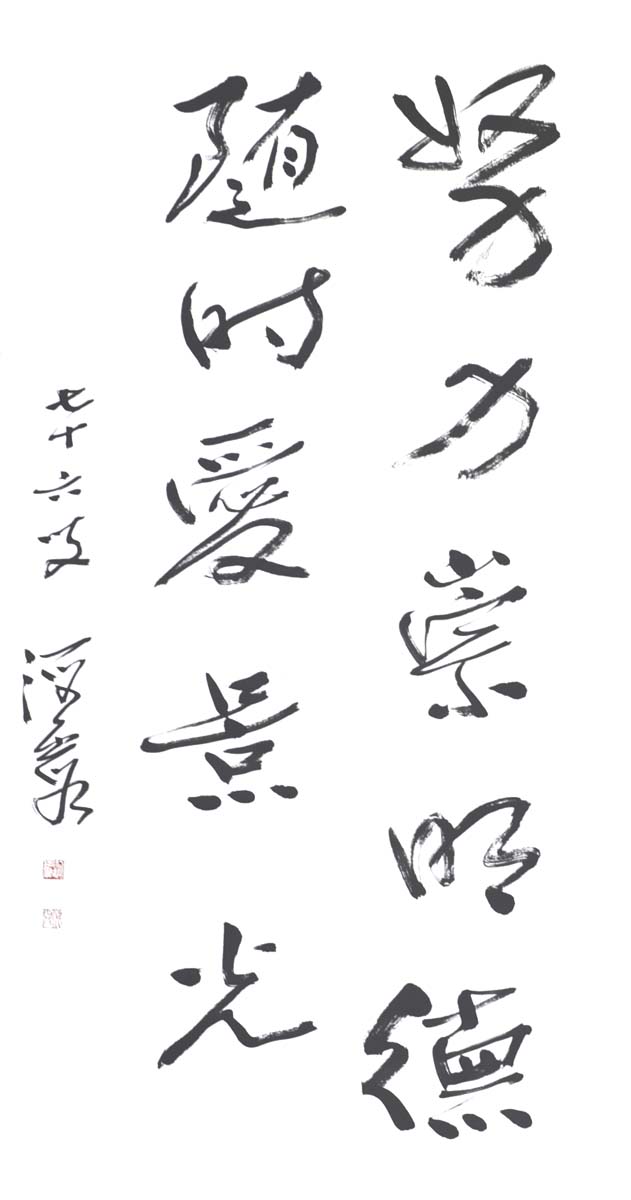 努力崇明德
随时愛景光
七十六叟